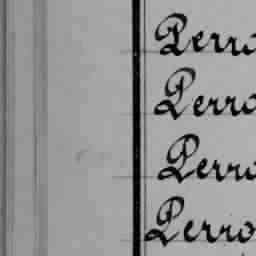 Perro
Perro
Perro
Perro